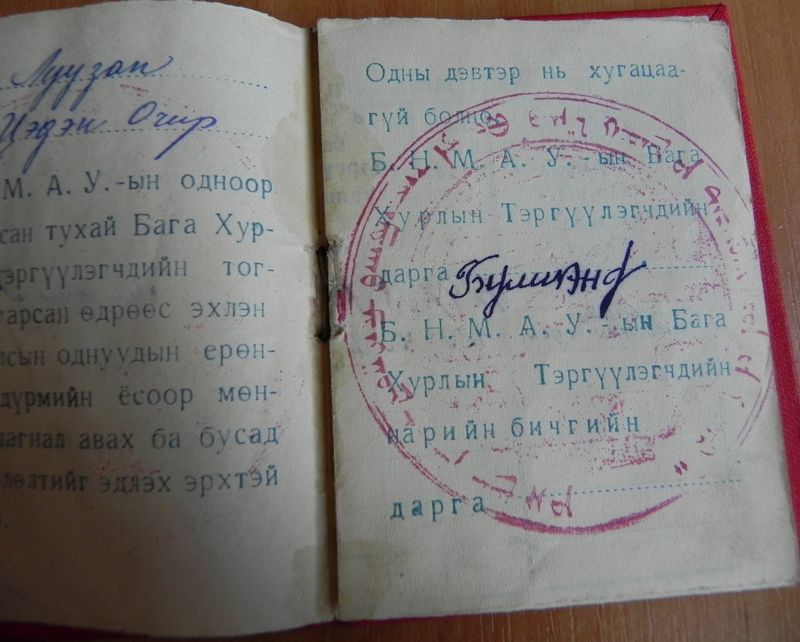 Луузан
Цэдэн Очир
М. А. У.-ын одноор
сан тухай Бага Хур-
эргүүлэгчдийн тог-
гарсан өдрөөс эхлэн
лсын однуудын ерөн-
дүрмийн ёсоор мөн-
шагнал авах ба бусад
лөлтийг эдлэх эрхтэй
Одны дэвтэр нь хугацаа-
гүй болно.
Б. Н. М. А. У.-ын Бага
Хурлын Тэргүүлэгчдийн
дарга
Б. Н. М. А. У.-ын Бага
Хурлын Тэргүүлэгчдийн
нарийн бичгийн
дарга